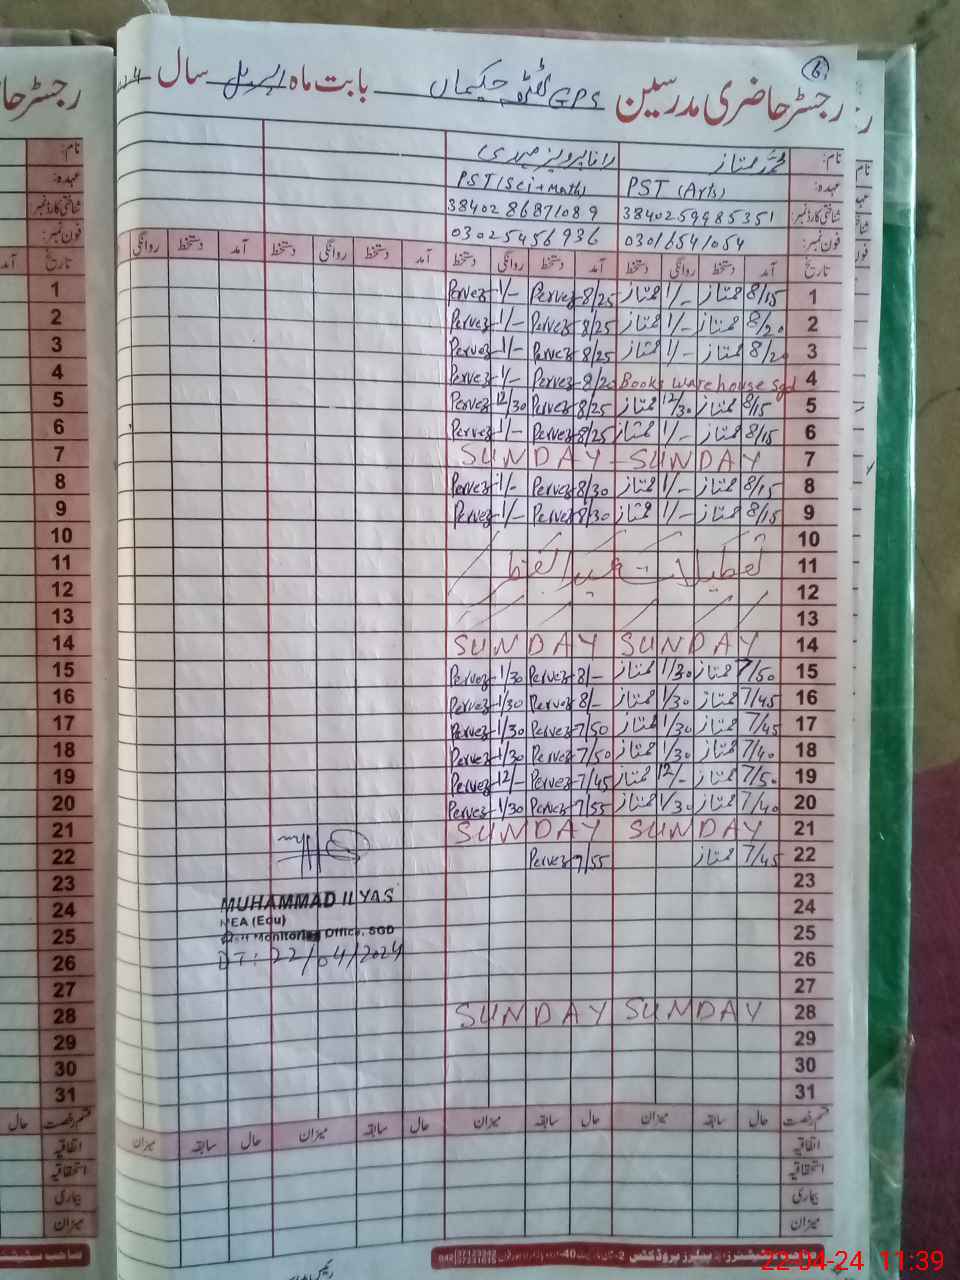 رجسٹر حاضری مدرسین GPS کٹڑہ حکیماں بابت ماہ اپریل سال
6
نام: محمد ممتاز رانا پرویز مہدی
عہدہ: PST (Arts) PST (Sci + Math)
شناختی کارڈ نمبر: 3840259985351 3840286871089
فون نمبر: 03016541054 03025456936
تاریخ آمد دستخط روانگی دستخط آمد دستخط روانگی دستخط آمد دستخط روانگی دستخط آمد دستخط روانگی
1 8/15 ممتاز 1/- ممتاز 8/25 Pervez 1/- Pervez
2 8/20 ممتاز 1/- ممتاز 8/25 Pervez 1/- Pervez
3 8/20 ممتاز 1/- ممتاز 8/25 Pervez 1/- Pervez
4 Books warehouse Sgd 8/20 Pervez 1/- Pervez
5 8/15 ممتاز 12/30 ممتاز 8/25 Pervez 12/30 Pervez
6 8/15 ممتاز 1/- ممتاز 8/25 Pervez 1/- Pervez
7 SUNDAY SUNDAY
8 8/15 ممتاز 1/- ممتاز 8/30 Pervez 1/- Pervez
9 8/15 ممتاز 1/- ممتاز 8/30 Pervez 1/- Pervez
10
11 تعطیلات عیدالفطر
12
13
14 SUNDAY SUNDAY
15 7/50 ممتاز 1/30 ممتاز 8/- Pervez 1/30 Pervez
16 7/45 ممتاز 1/30 ممتاز 8/- Pervez 1/30 Pervez
17 7/45 ممتاز 1/30 ممتاز 7/50 Pervez 1/30 Pervez
18 7/40 ممتاز 1/30 ممتاز 7/50 Pervez 1/30 Pervez
19 7/50 ممتاز 12/- ممتاز 7/45 Pervez 12/- Pervez
20 7/40 ممتاز 1/30 ممتاز 7/55 Pervez 1/30 Pervez
21 SUNDAY SUNDAY
22 7/45 ممتاز 7/55 Pervez
23
24
25
26
27
28 SUNDAY SUNDAY
29
30
31
MUHAMMAD ILYAS
MEA (Edu)
Monitoring Office, SGD
DT: 22/04/2024
قسم رخصت حال سابقہ میزان حال سابقہ میزان حال سابقہ میزان حال سابقہ میزان
اتفاقیہ
استحقاقیہ
بیماری
میزان
22-04-24 11:39